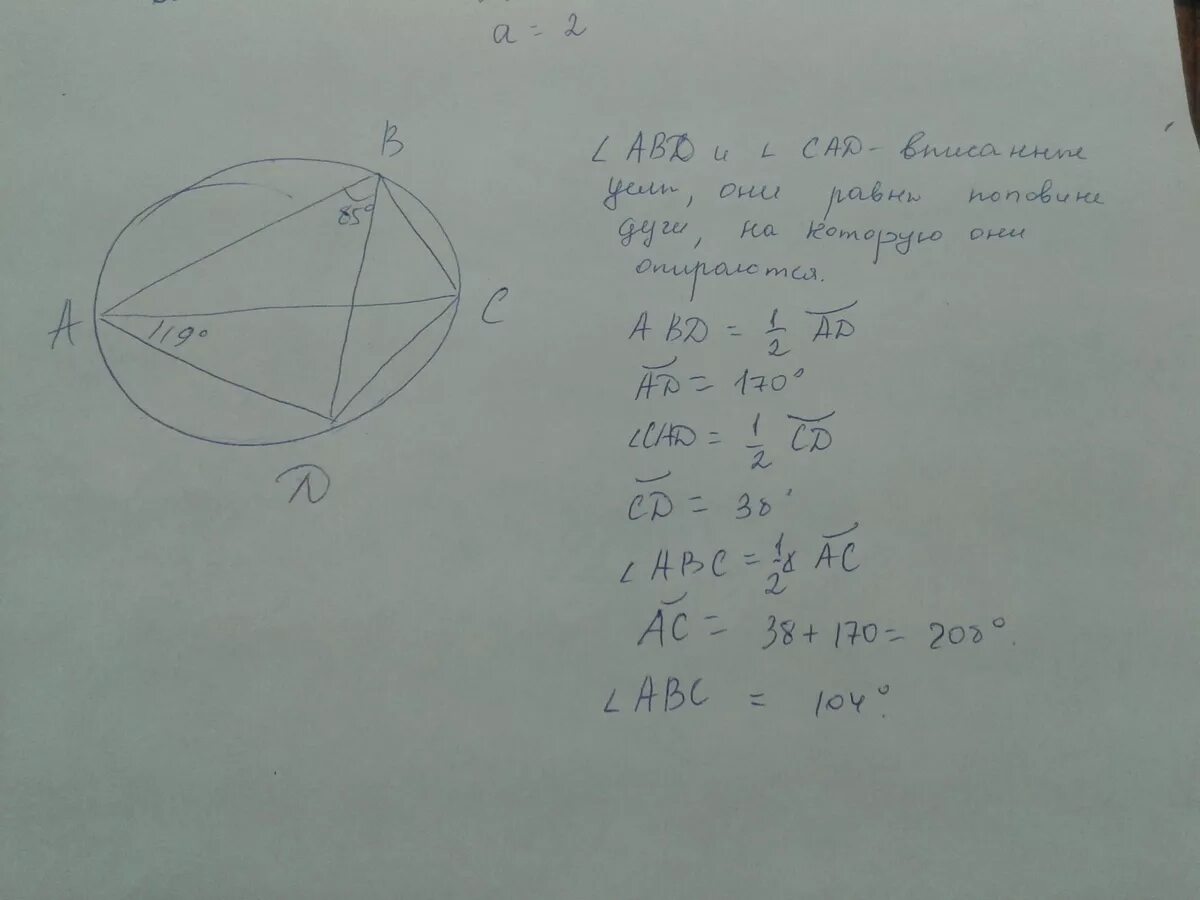 a = 2
B
85°
A
C
119°
D
∠ ABD и ∠ CAD - вписанные
углы, они равны половине
дуги, на которую они
опираются.
ABD = 1/2 AD
AD = 170°
∠CAD = 1/2 CD
CD = 38°
∠ ABC = 1/2 AC
AC = 38 + 170 = 208°.
∠ ABC = 104°.